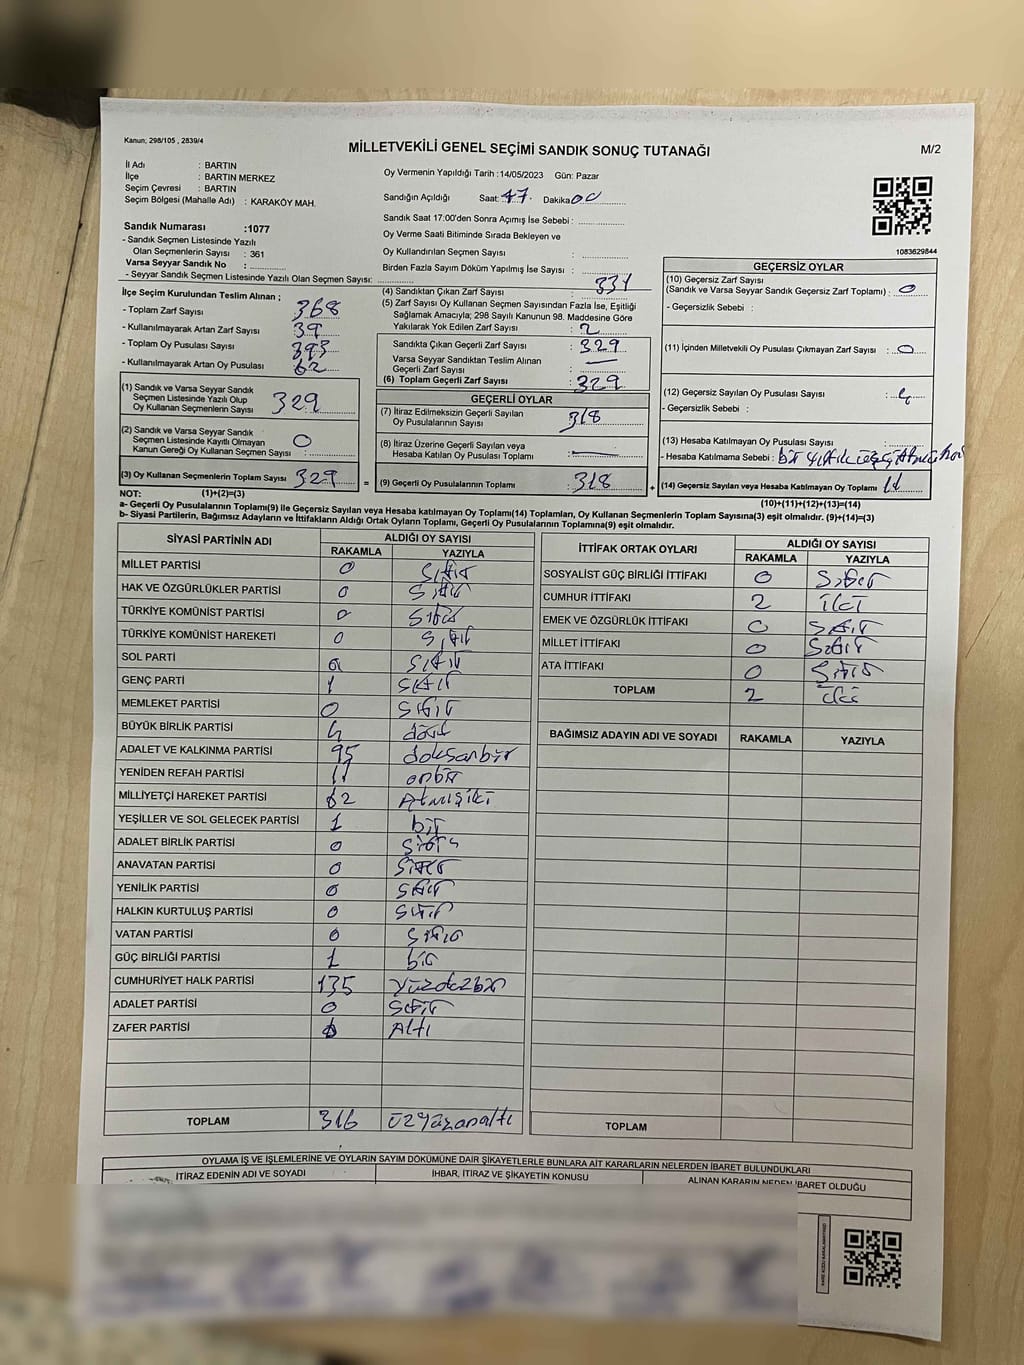 Kanun; 298/105 , 2839/4
MİLLETVEKİLİ GENEL SEÇİMİ SANDIK SONUÇ TUTANAĞI
M/2
İl Adı : BARTIN
İlçe : BARTIN MERKEZ
Seçim Çevresi : BARTIN
Seçim Bölgesi (Mahalle Adı) : KARAKÖY MAH.
Sandık Numarası :1077
- Sandık Seçmen Listesinde Yazılı
Olan Seçmenlerin Sayısı : 361
Varsa Seyyar Sandık No :
- Seyyar Sandık Seçmen Listesinde Yazılı Olan Seçmen Sayısı:
Oy Vermenin Yapıldığı Tarih :14/05/2023 Gün: Pazar
Sandığın Açıldığı Saat: 17 Dakika 00
Sandık Saat 17:00'den Sonra Açımış İse Sebebi :
Oy Verme Saati Bitiminde Sırada Bekleyen ve
Oy Kullandırılan Seçmen Sayısı :
Birden Fazla Sayım Döküm Yapılmış İse Sayısı :
1083629844
İlçe Seçim Kurulundan Teslim Alınan ;
- Toplam Zarf Sayısı 368
- Kullanılmayarak Artan Zarf Sayısı 39
- Toplam Oy Pusulası Sayısı
- Kullanılmayarak Artan Oy Pusulası 62
(1) Sandık ve Varsa Seyyar Sandık
Seçmen Listesinde Yazılı Olup
Oy Kullanan Seçmenlerin Sayısı 329
(2) Sandık ve Varsa Seyyar Sandık
Seçmen Listesinde Kayıtlı Olmayan
Kanun Gereği Oy Kullanan Seçmen Sayısı : 0
(3) Oy Kullanan Seçmenlerin Toplam Sayısı 329 =
(4) Sandıktan Çıkan Zarf Sayısı : 331
(5) Zarf Sayısı Oy Kullanan Seçmen Sayısından Fazla İse, Eşitliği
Sağlamak Amacıyla; 298 Sayılı Kanunun 98. Maddesine Göre
Yakılarak Yok Edilen Zarf Sayısı : 2
Sandıkta Çıkan Geçerli Zarf Sayısı : 329
Varsa Seyyar Sandıktan Teslim Alınan
Geçerli Zarf Sayısı :
(6) Toplam Geçerli Zarf Sayısı : 329
GEÇERLİ OYLAR
(7) İtiraz Edilmeksizin Geçerli Sayılan
Oy Pusulalarının Sayısı : 318
(8) İtiraz Üzerine Geçerli Sayılan veya
Hesaba Katılan Oy Pusulası Toplamı :
(9) Geçerli Oy Pusulalarının Toplamı : 318 +
GEÇERSİZ OYLAR
(10) Geçersiz Zarf Sayısı
(Sandık ve Varsa Seyyar Sandık Geçersiz Zarf Toplamı) : 0
- Geçersizlik Sebebi :
(11) İçinden Milletvekili Oy Pusulası Çıkmayan Zarf Sayısı : 0
(12) Geçersiz Sayılan Oy Pusulası Sayısı :
- Geçersizlik Sebebi :
(13) Hesaba Katılmayan Oy Pusulası Sayısı :
- Hesaba Katılmama Sebebi :
(14) Geçersiz Sayılan veya Hesaba Katılmayan Oy Toplamı 11
NOT: (1)+(2)=(3)
(10)+(11)+(12)+(13)=(14)
a- Geçerli Oy Pusulalarının Toplamı(9) ile Geçersiz Sayılan veya Hesaba katılmayan Oy Toplamı(14) Toplamları, Oy Kullanan Seçmenlerin Toplam Sayısına(3) eşit olmalıdır. (9)+(14)=(3)
b- Siyasi Partilerin, Bağımsız Adayların ve İttifakların Aldığı Ortak Oyların Toplamı, Geçerli Oy Pusulalarının Toplamına(9) eşit olmalıdır.
SİYASİ PARTİNİN ADI ALDIĞI OY SAYISI
RAKAMLA YAZIYLA
MİLLET PARTİSİ 0 Sıfır
HAK VE ÖZGÜRLÜKLER PARTİSİ 0 Sıfır
TÜRKİYE KOMÜNİST PARTİSİ 0 Sıfır
TÜRKİYE KOMÜNİST HAREKETİ 0 Sıfır
SOL PARTİ 0 Sıfır
GENÇ PARTİ 1 Sıfır
MEMLEKET PARTİSİ 0 Sıfır
BÜYÜK BİRLİK PARTİSİ 4 dört
ADALET VE KALKINMA PARTİSİ 95
YENİDEN REFAH PARTİSİ 11 onbir
MİLLİYETÇİ HAREKET PARTİSİ 62 Atmışiki
YEŞİLLER VE SOL GELECEK PARTİSİ 1 bir
ADALET BİRLİK PARTİSİ 0 Sıfır
ANAVATAN PARTİSİ 0 Sıfır
YENİLİK PARTİSİ 0 Sıfır
HALKIN KURTULUŞ PARTİSİ 0 Sıfır
VATAN PARTİSİ 0 Sıfır
GÜÇ BİRLİĞİ PARTİSİ 1 bir
CUMHURİYET HALK PARTİSİ 135
ADALET PARTİSİ 0 Sıfır
ZAFER PARTİSİ 6 Altı
TOPLAM 316
İTTİFAK ORTAK OYLARI ALDIĞI OY SAYISI
RAKAMLA YAZIYLA
SOSYALİST GÜÇ BİRLİĞİ İTTİFAKI 0 Sıfır
CUMHUR İTTİFAKI 2 iki
EMEK VE ÖZGÜRLÜK İTTİFAKI 0 Sıfır
MİLLET İTTİFAKI 0 Sıfır
ATA İTTİFAKI 0 Sıfır
TOPLAM 2 iki
BAĞIMSIZ ADAYIN ADI VE SOYADI RAKAMLA YAZIYLA
TOPLAM
OYLAMA İŞ VE İŞLEMLERİNE VE OYLARIN SAYIM DÖKÜMÜNE DAİR ŞİKAYETLERLE BUNLARA AİT KARARLARIN NELERDEN İBARET BULUNDUKLARI
İTİRAZ EDENİN ADI VE SOYADI İHBAR, İTİRAZ VE ŞİKAYETİN KONUSU ALINAN KARARIN NEDEN İBARET OLDUĞU